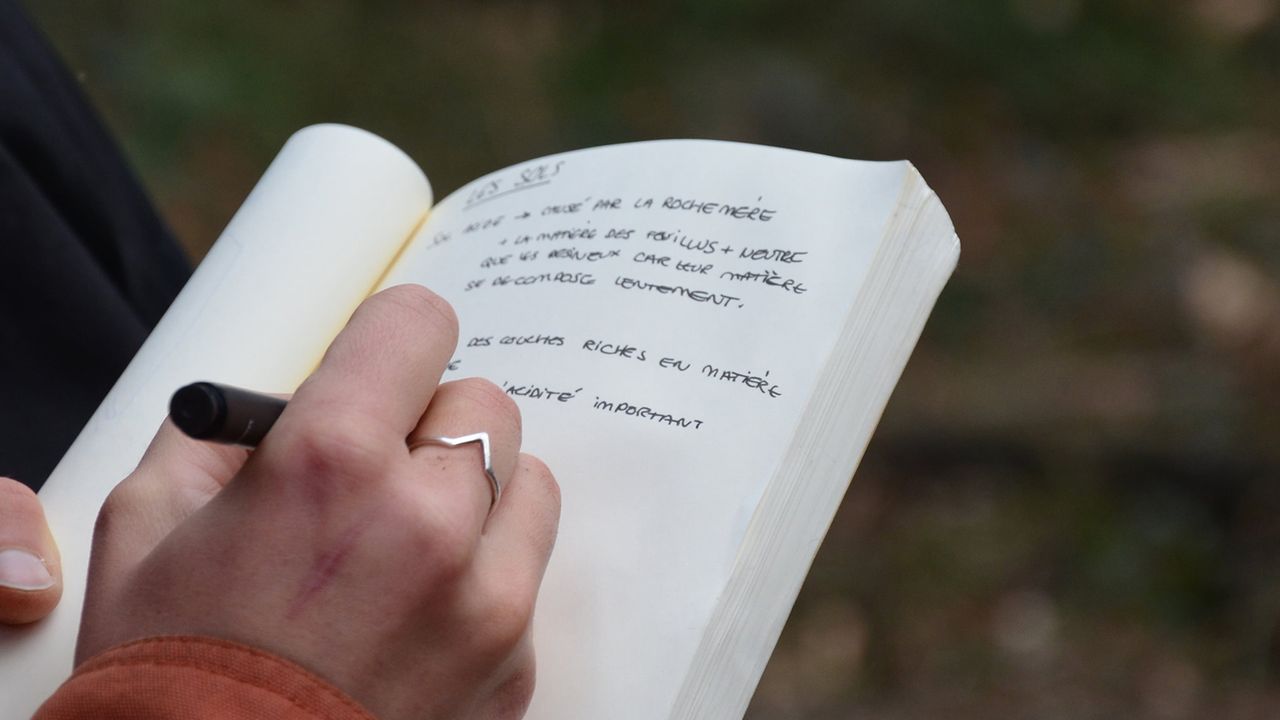 LES SOLS
SOL ACIDE → CAUSÉ PAR LA ROCHE MÈRE
+ LA MATIÈRE DES FEUILLUS + NEUTRE
QUE LES RÉSINEUX CAR LEUR MATIÈRE
SE DECOMPOSE LENTEMENT.
DES COUCHES RICHES EN MATIÈRE
'ACIDITÉ IMPORTANT